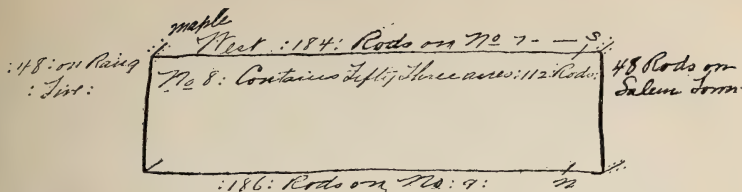 maple
West :184: Rods on No 7 - — S
:48: on Rang
: Five:
No 8: Contains Fifty Three acres: 112 Rods:
48 Rods on
Salem Town
:186: Rods on No: 9: n